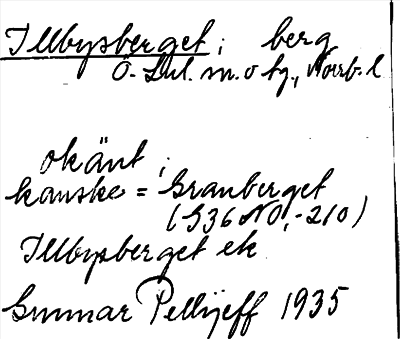 Illbysberget; berg
Ö. Lul. m. o tg., Norrb. l
okänt;
kanske = Granberget
(S36 NO, - 210)
Illbysberget ek
Gunnar Pellijeff 1935